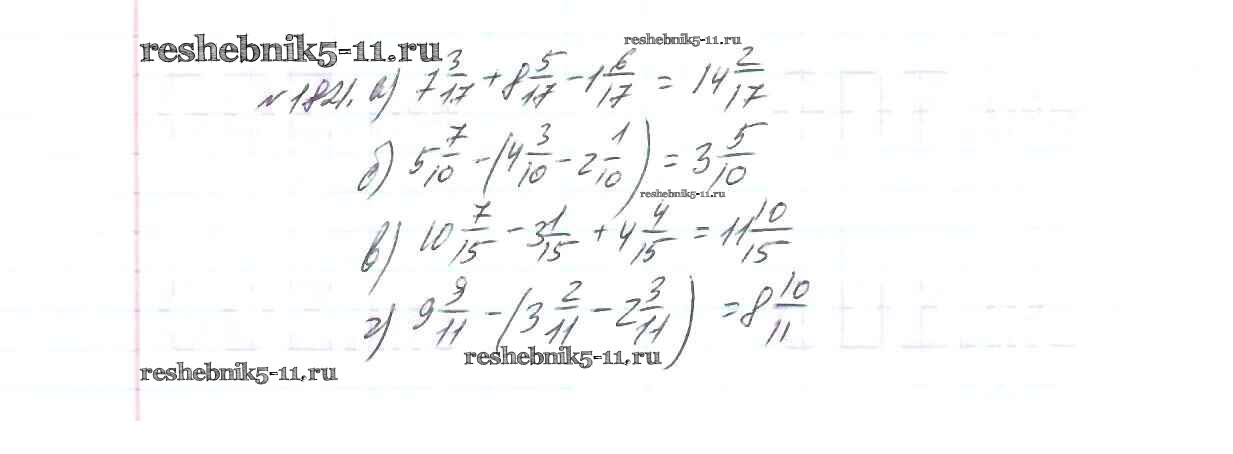 reshebnik5-11.ru
reshebnik5-11.ru
№1821. а) 7 3/17 + 8 5/17 - 1 6/17 = 14 2/17
б) 5 7/10 - (4 3/10 - 2 1/10) = 3 5/10
reshebnik5-11.ru
в) 10 7/15 - 3 1/15 + 4 4/15 = 11 10/15
г) 9 9/11 - (3 2/11 - 2 3/11) = 8 10/11
reshebnik5-11.ru
reshebnik5-11.ru